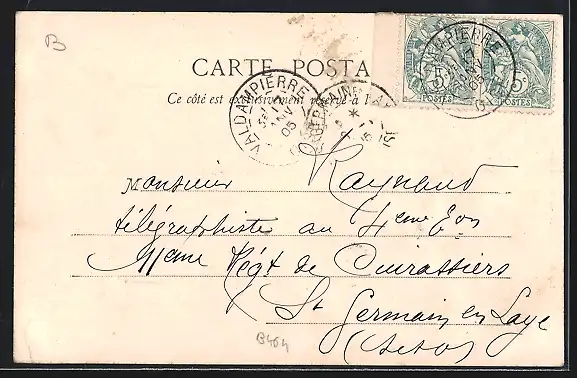 B
CARTE POSTA
Ce côté est exclusivement réservé à l'a
VALDAMPIERRE
JANV
05
5c
POSTES
5c
POSTES
Monsieur Raynaud
télégraphiste au 4eme Eon
11eme Régt de Cuirassiers
St Germain en Laye
(Set O)
B404